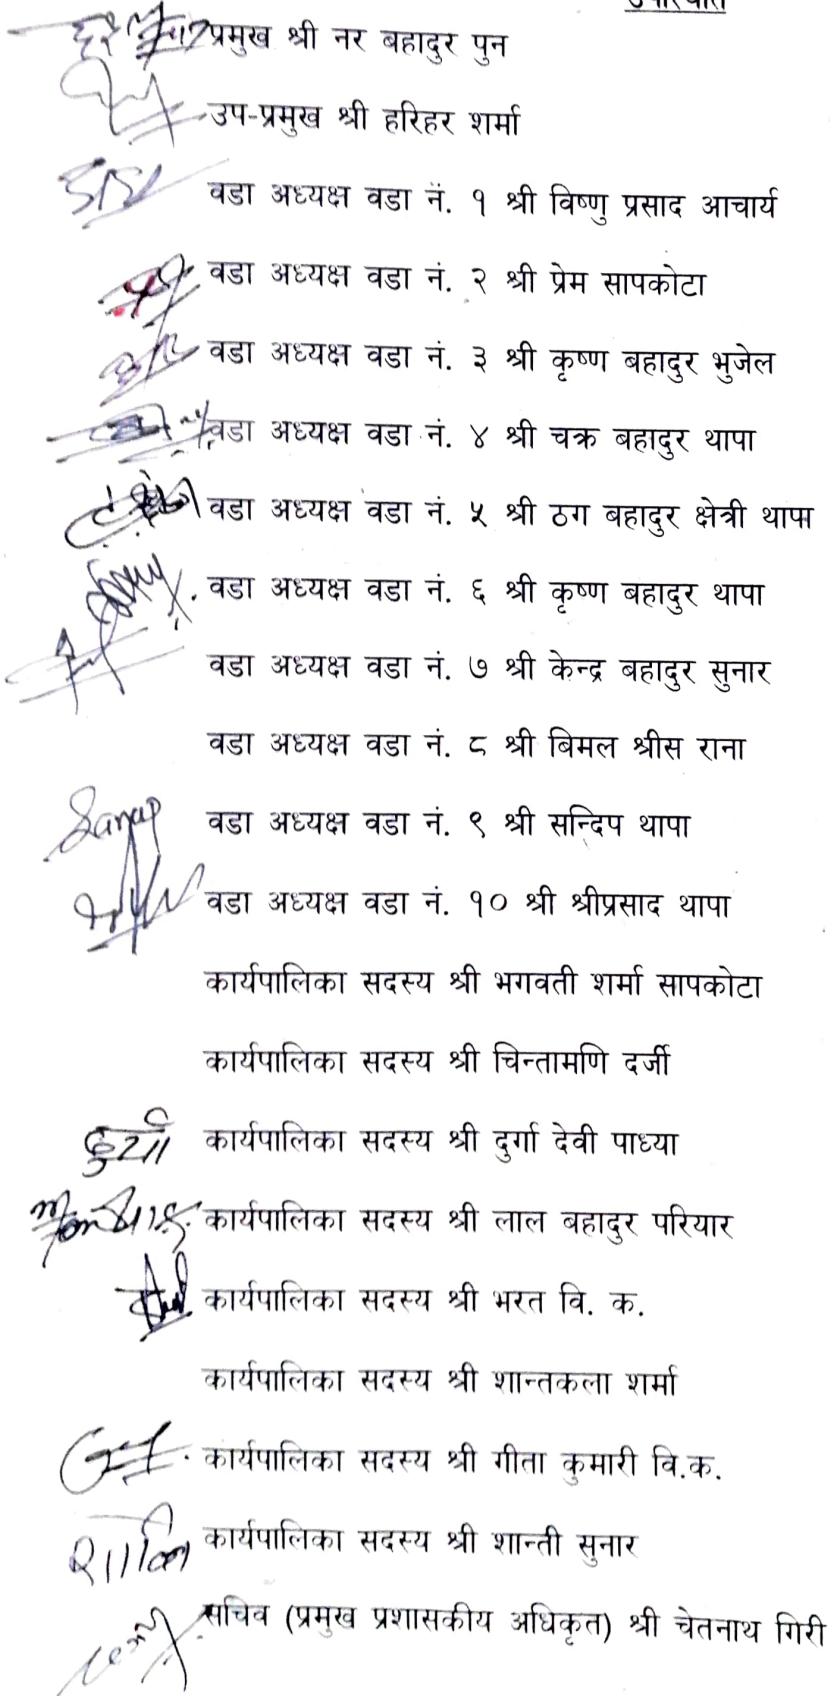 उपस्थिति
प्रमुख श्री नर बहादुर पुन
उप-प्रमुख श्री हरिहर शर्मा
वडा अध्यक्ष वडा नं. १ श्री विष्णु प्रसाद आचार्य
वडा अध्यक्ष वडा नं. २ श्री प्रेम सापकोटा
वडा अध्यक्ष वडा नं. ३ श्री कृष्ण बहादुर भुजेल
वडा अध्यक्ष वडा नं. ४ श्री चक्र बहादुर थापा
वडा अध्यक्ष वडा नं. ५ श्री ठग बहादुर क्षेत्री थापा
वडा अध्यक्ष वडा नं. ६ श्री कृष्ण बहादुर थापा
वडा अध्यक्ष वडा नं. ७ श्री केन्द्र बहादुर सुनार
वडा अध्यक्ष वडा नं. ८ श्री बिमल श्रीस राना
वडा अध्यक्ष वडा नं. ९ श्री सन्दिप थापा
वडा अध्यक्ष वडा नं. १० श्री श्रीप्रसाद थापा
कार्यपालिका सदस्य श्री भगवती शर्मा सापकोटा
कार्यपालिका सदस्य श्री चिन्तामणि दर्जी
कार्यपालिका सदस्य श्री दुर्गा देवी पाध्या
कार्यपालिका सदस्य श्री लाल बहादुर परियार
कार्यपालिका सदस्य श्री भरत वि. क.
कार्यपालिका सदस्य श्री शान्तकला शर्मा
कार्यपालिका सदस्य श्री गीता कुमारी वि.क.
कार्यपालिका सदस्य श्री शान्ती सुनार
सचिव (प्रमुख प्रशासकीय अधिकृत) श्री चेतनाथ गिरी